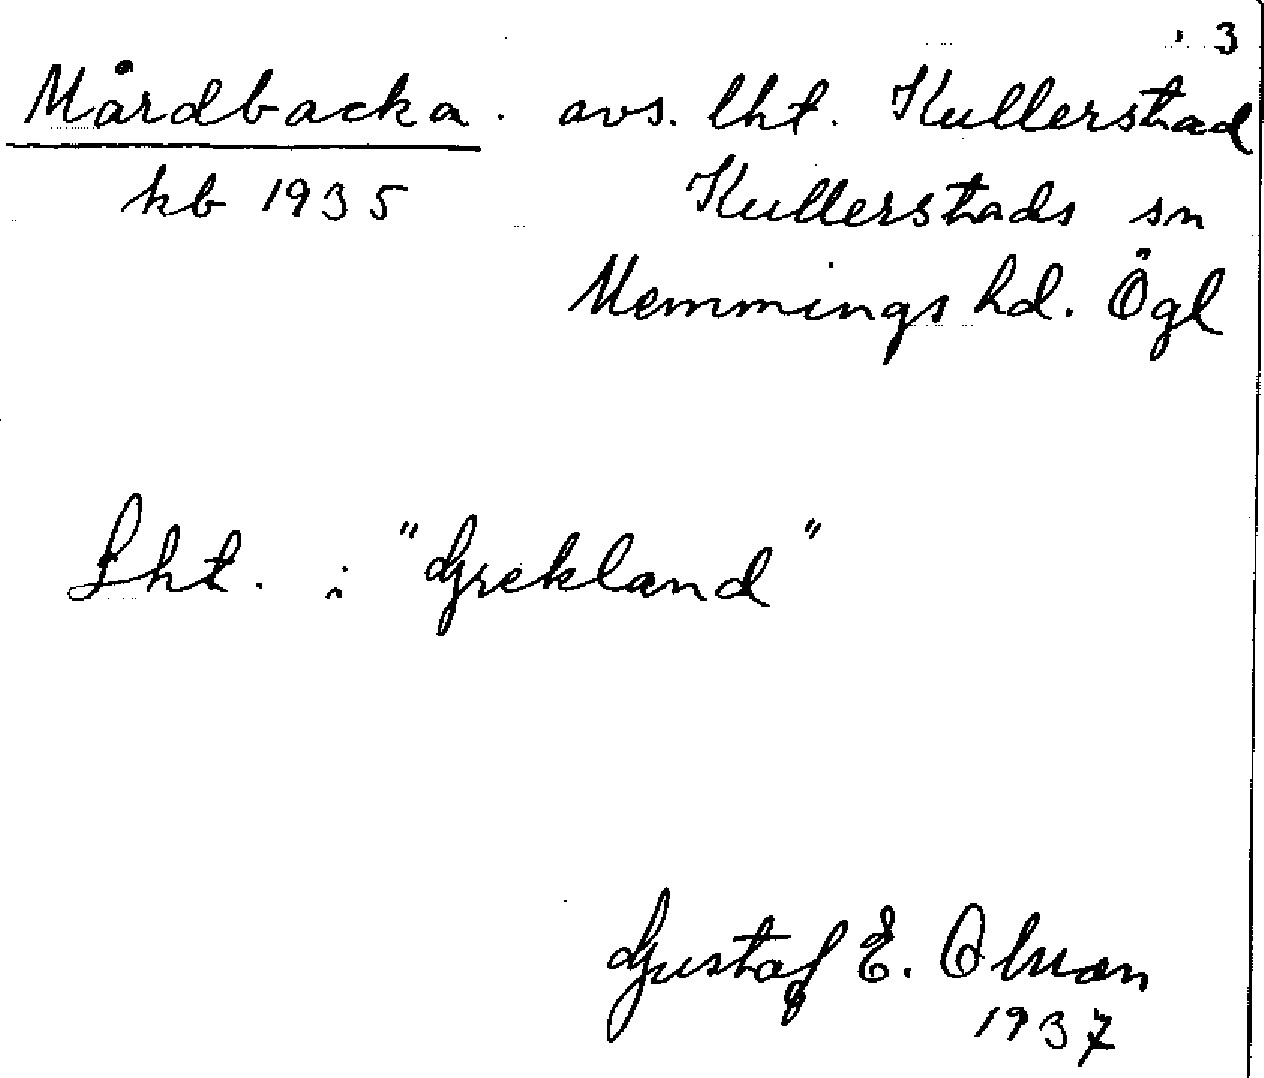 3
Mårdbacka. avs. lht. Kullerstad
kb 1935 Kullerstads sn
Memmings hd. Ögl
Lht. i "Grekland"
Gustaf E. Olsson
1937